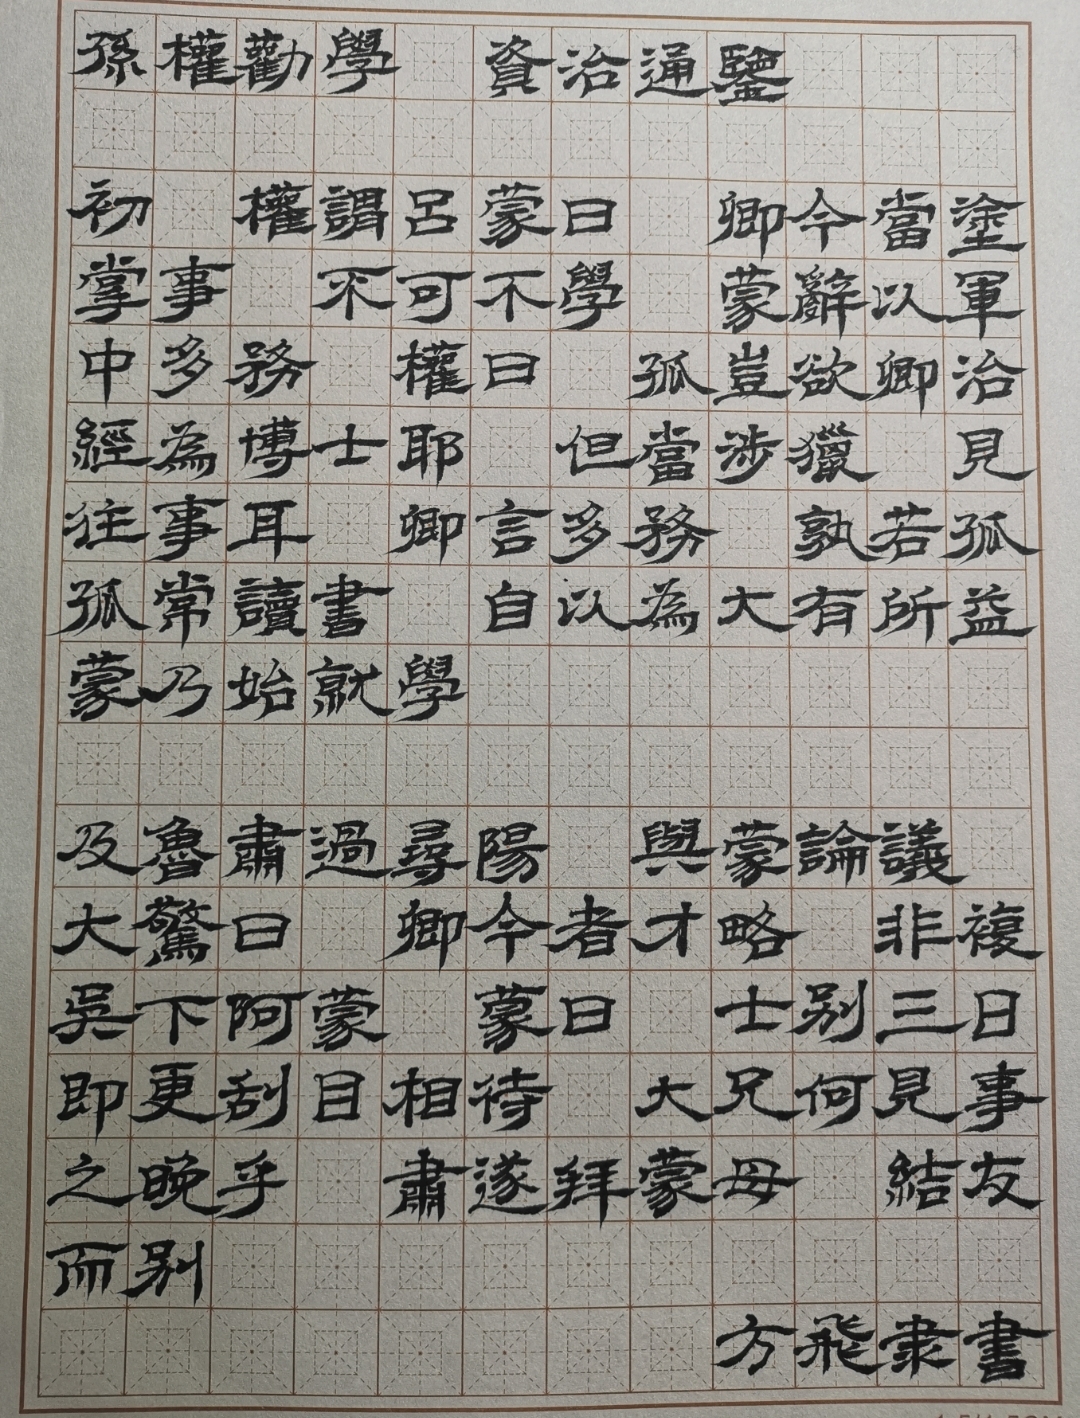 孫權勸學 資治通鑒
初 權謂呂蒙曰 卿今當塗
掌事 不可不學 蒙辭以軍
中多務 權曰 孤豈欲卿治
經為博士耶 但當涉獵 見
往事耳 卿言多務 孰若孤
孤常讀書 自以為大有所益
蒙乃始就學
及魯肅過尋陽 與蒙論議
大驚曰 卿今者才略 非複
吳下阿蒙 蒙曰 士别三日
即更刮目相待 大兄何見事
之晚乎 肅遂拜蒙母 結友
而别
方飛隶書